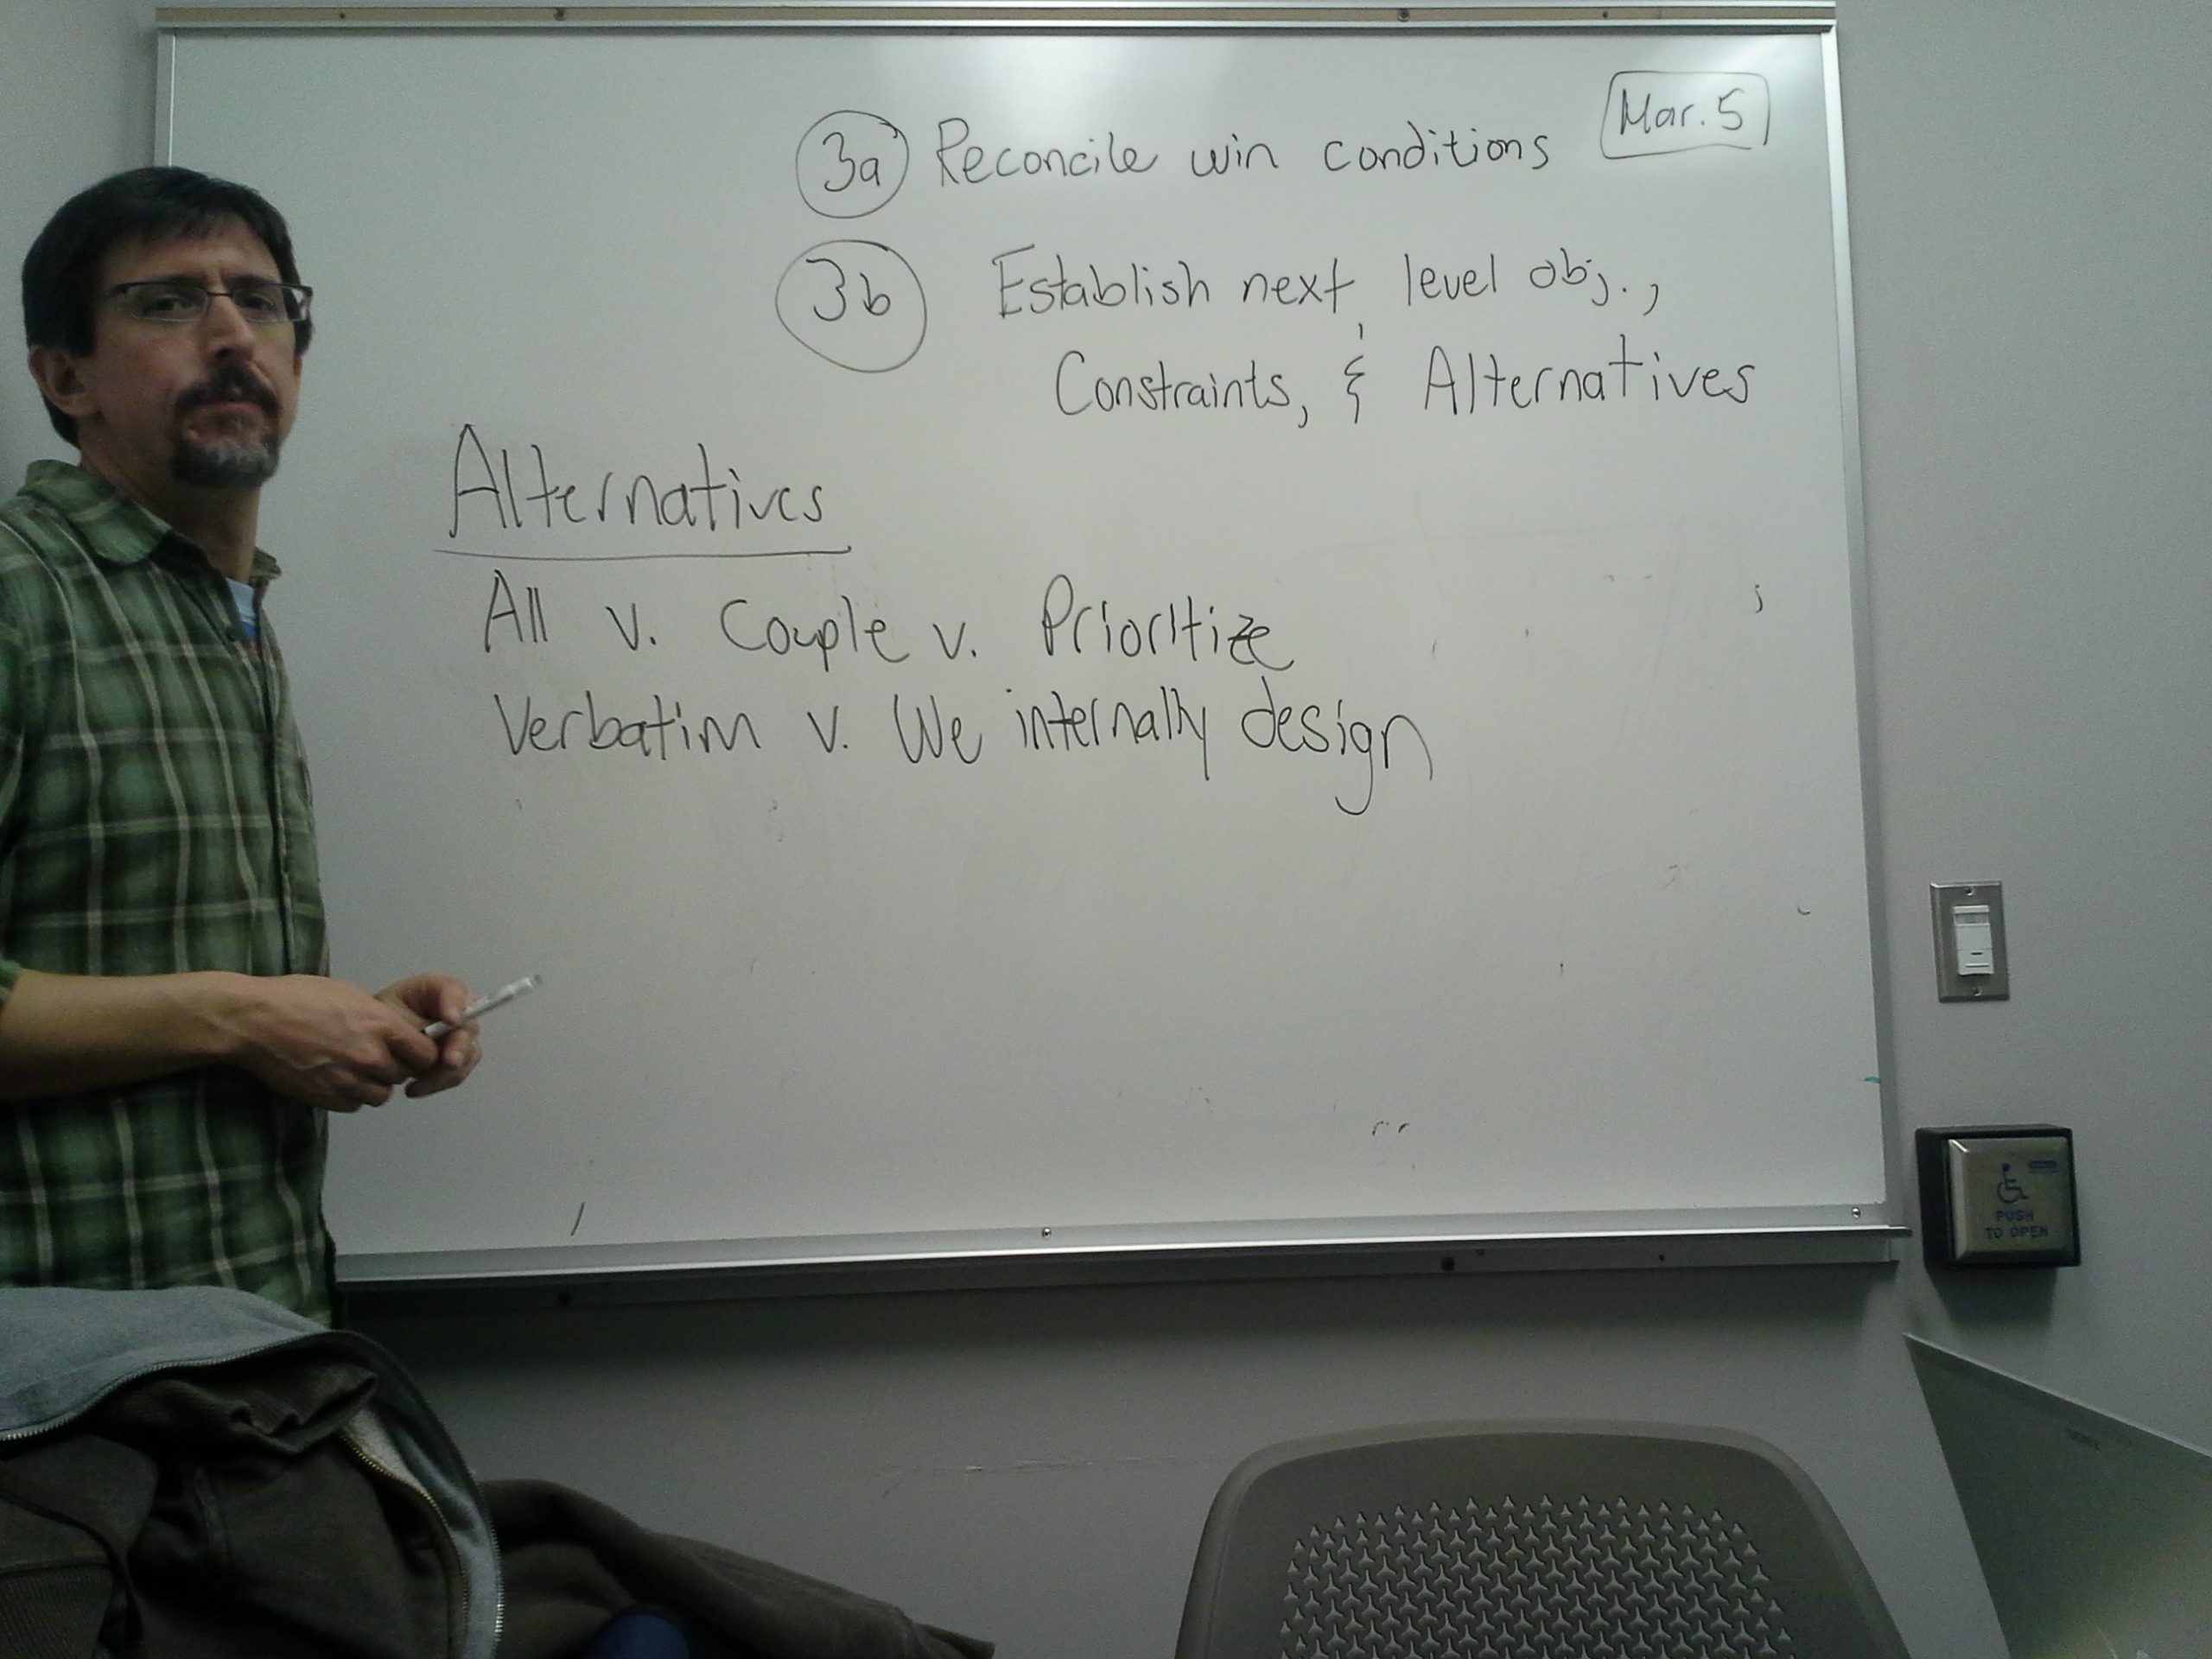 Mar. 5
3a Reconcile win conditions
3b Establish next level obj.,
Constraints, & Alternatives
Alternatives
All v. Couple v. Prioritize
Verbatim v. We internally design
PUSH
TO OPEN